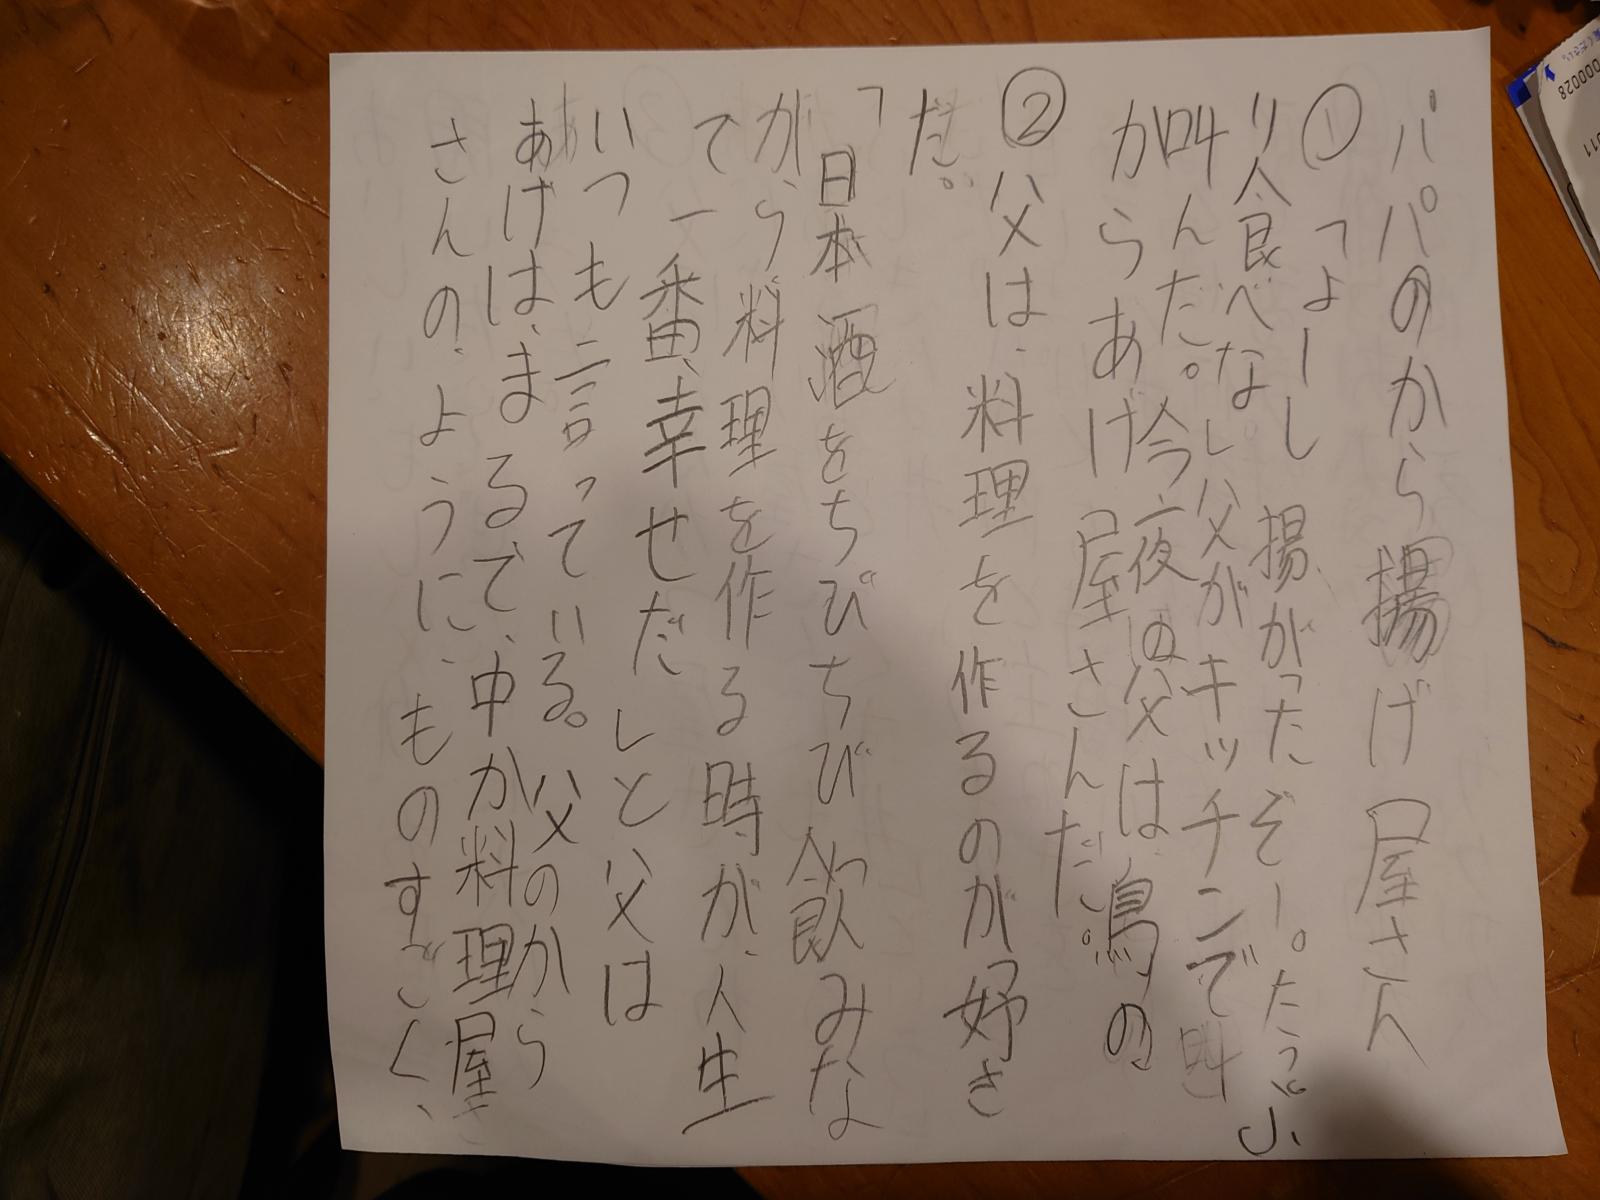 パパのから揚げ屋さん
①「よーし 揚がったぞー。たっぷ
り食べな」父がキッチンで
叫んだ。今夜の父は、鳥の
からあげ屋さんだ。
②父は、料理を作るのが好き
だ。
「日本酒をちびちび飲みな
がら料理を作る時が、人生
て一番、幸せだ」と父は
いつも言っている。父のから
あげは、まるで、中か料理屋
さんの、ように、ものすごく、
000028